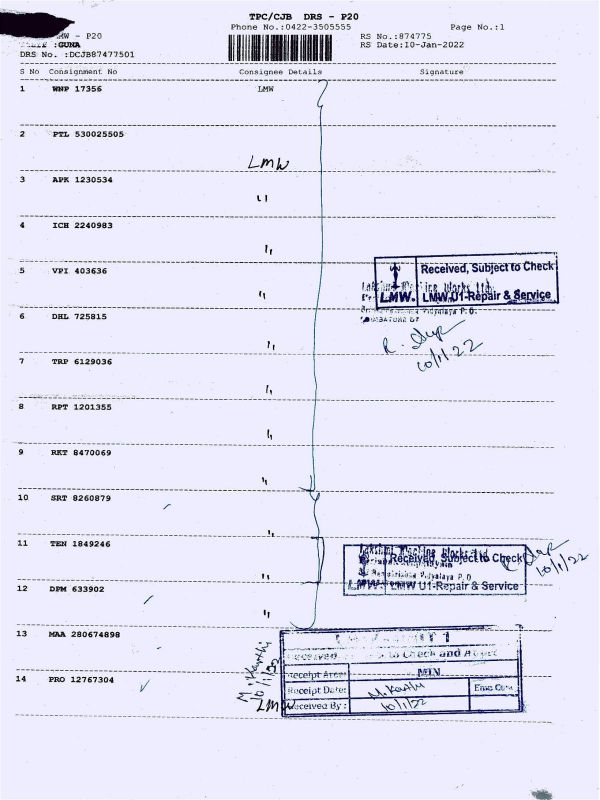 TPC/CJB DRS - P20
Phone No.:0422-3505555 Page No.:1
- P20 RS No.:874775
:GUNA RS Date:10-Jan-2022
DRS No. :DCJB87477501
S No Consignment No Consignee Details Signature
1 WNP 17356 LMW
2 PTL 530025505
LMW
3 APK 1230534
"
4 ICH 2240983
"
5 VPI 403636
"
Received, Subject to Check
LMW. LMW U1-Repair & Service
6 DHL 725815
"
10/1/22
7 TRP 6129036
"
8 RPT 1201355
"
9 RKT 8470069
"
10 SRT 8260879
"
11 TEN 1849246
"
Received, Subject to Check
LMW. LMW U1-Repair & Service
10/1/22
12 DPM 633902
"
13 MAA 280674898
Received to Check and
Receipt Area: MIN
14 PRO 12767304
M. Karthi
10/1/22
Receipt Date: M. Karthi
LMW
Received By : 10/1/22